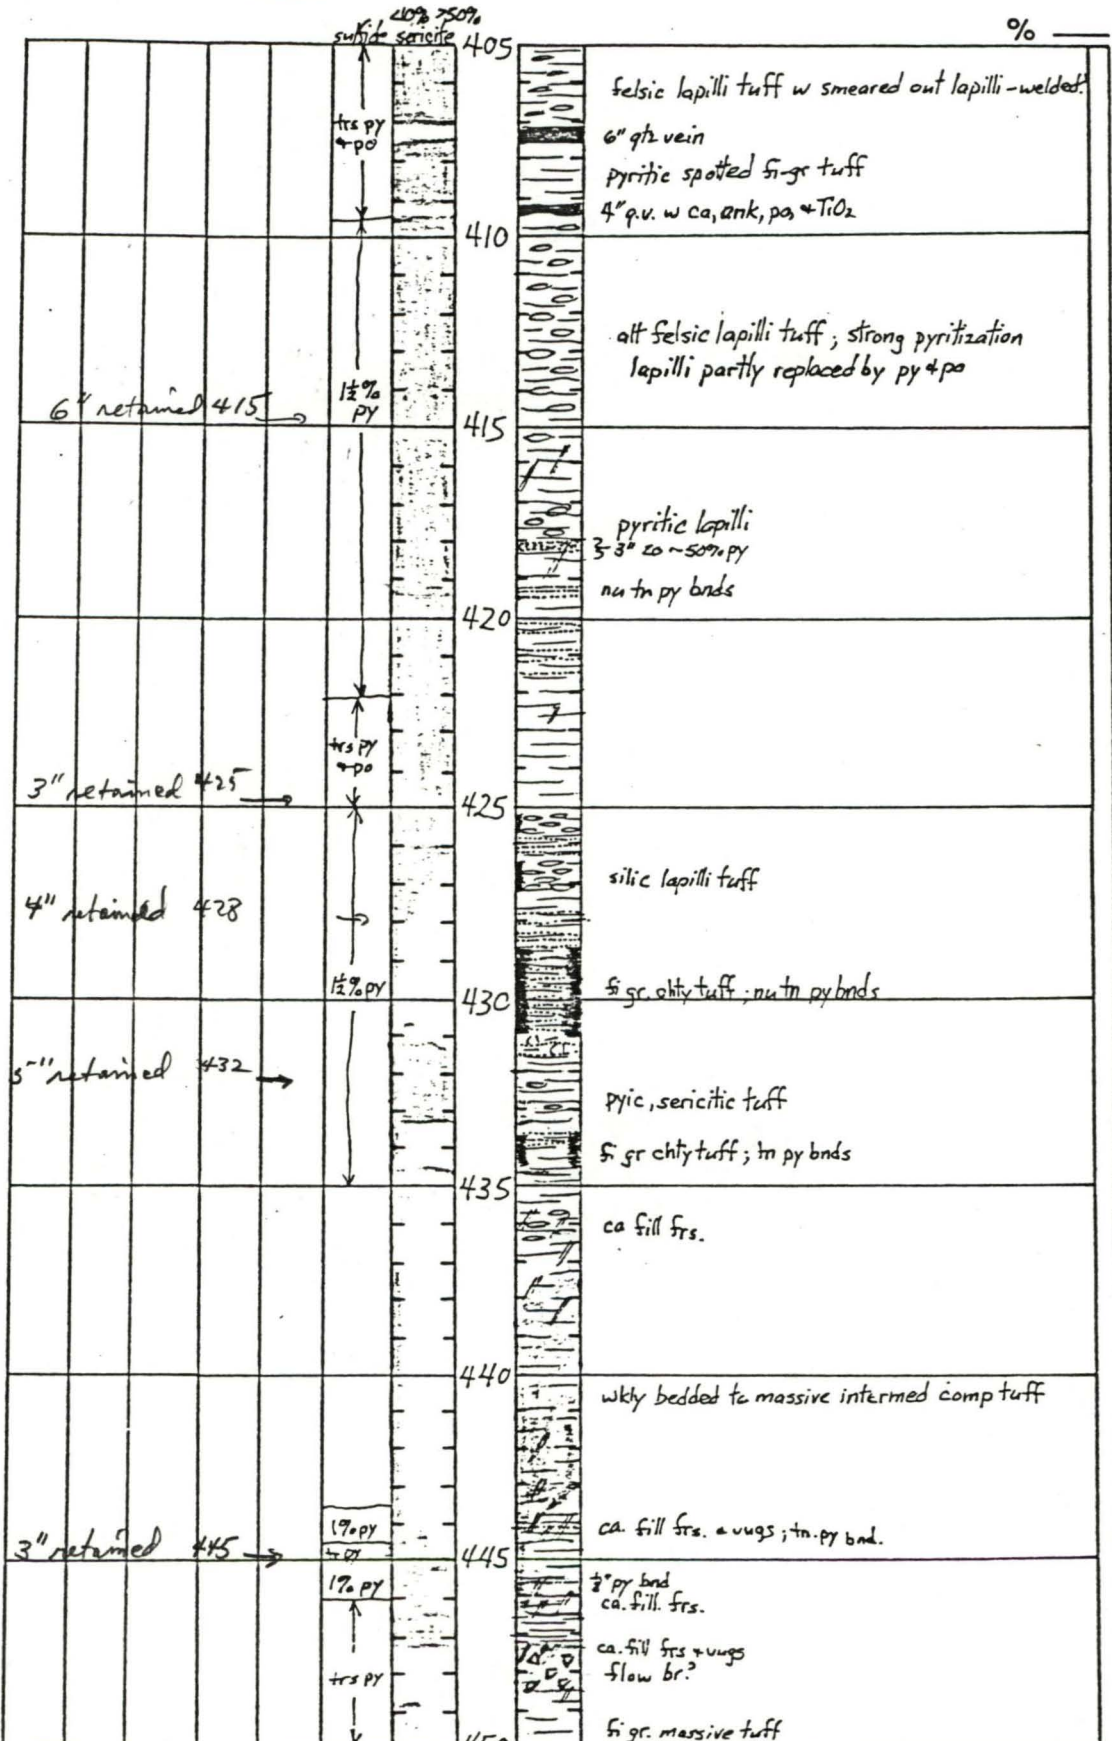 <10% >50%
sulfide sericite 405
% ____
felsic lapilli tuff w smeared out lapilli-welded.
trs py
+po
6" qtz vein
pyritic spotted fi-gr tuff
4" q.v. w ca, ank, po, + TiO2
410
alt felsic lapilli tuff; strong pyritization
lapilli partly replaced by py + po
1½%
py
6" retained 415
415
pyritic lapilli
3" zo ~50% py
nu tn py bnds
420
trs py
+po
3" retained 425
425
silic lapilli tuff
4" retained 428
1½% py
fi gr. chty tuff; nu tn py bnds
430
5" retained 432
pyic, sericitic tuff
fi gr chty tuff; tn py bnds
435
ca fill frs.
440
wkly bedded to massive intermed comp tuff
1% py
ca. fill frs. & vugs; tn. py bnd.
3" retained 445
445
1% py
½" py bnd
ca. fill. frs.
ca. fill frs + vugs
flow br.?
trs py
fi gr. massive tuff
450